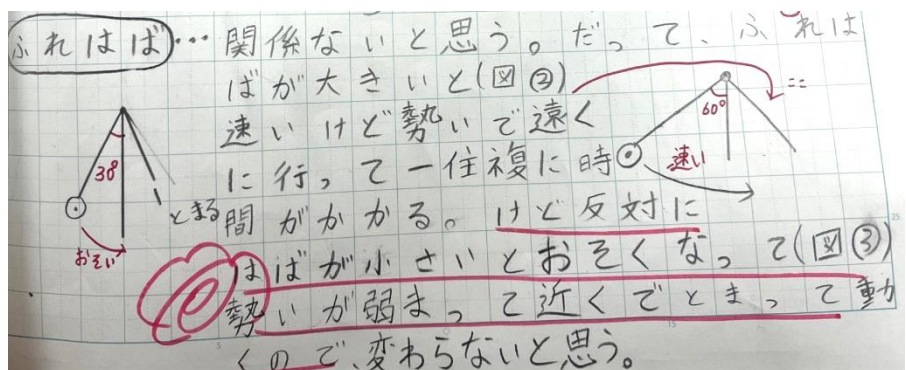 ふれはば…関係ないと思う。だって、ふれは
ばが大きいと(図②)
速いけど勢いで遠く
に行って一住複に時
間がかかる。けど反対に
はばが小さいとおそくなって(図③)
勢いが弱まって近くでとまって動
くので、変わらないと思う。
30°
とまる
おそい
60°
速い
ここ